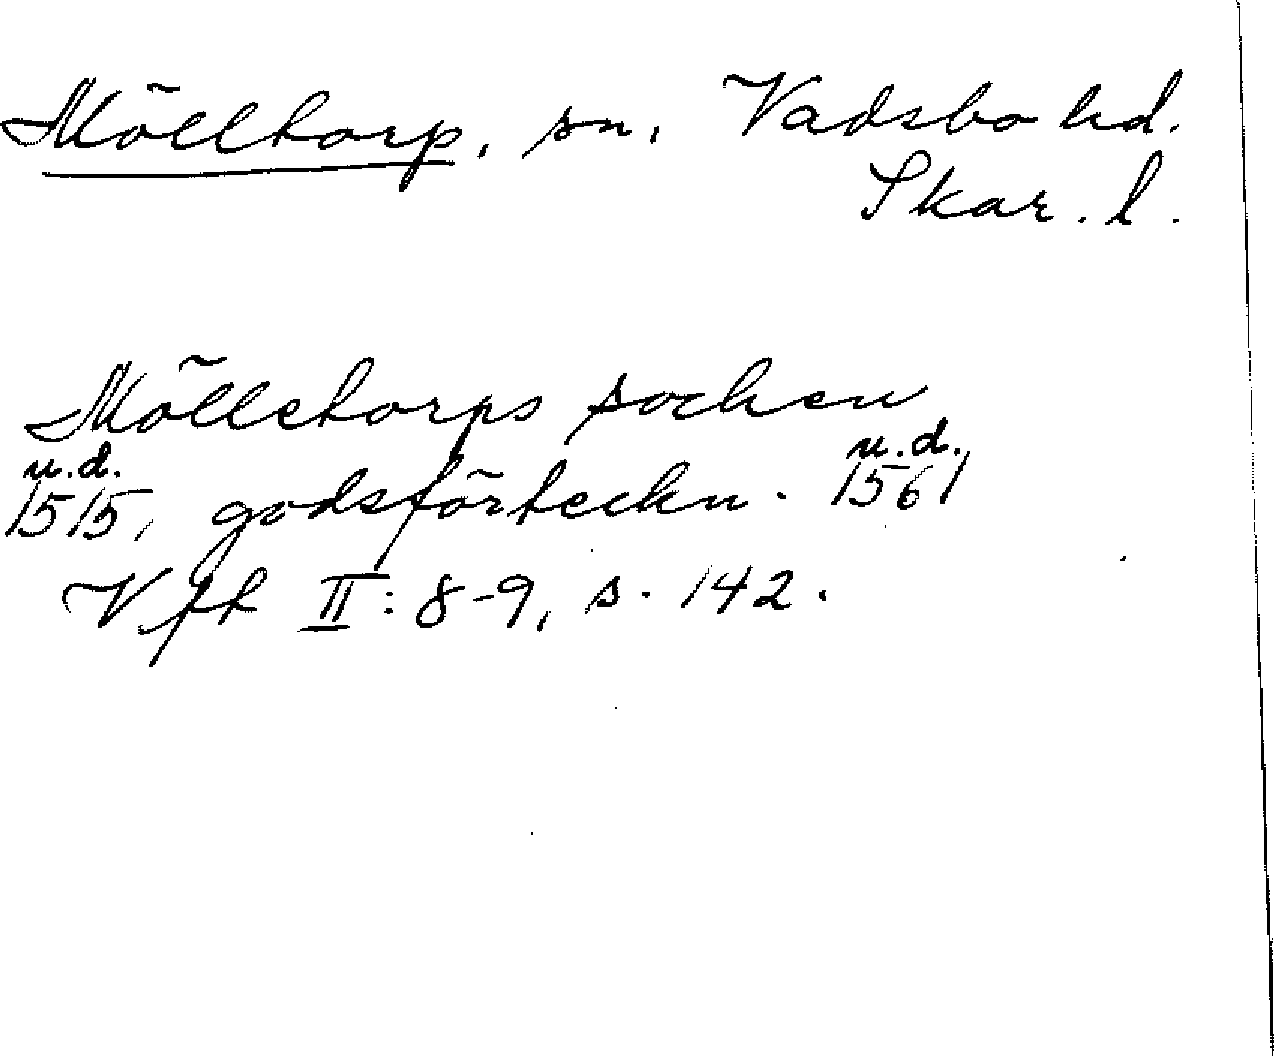 Mölltorp, sn, Vadsbo hd.
Skar. l.
Mölletorps sochen
u.d. u.d.
1515, godsförteckn. 1561
Vft II: 8-9, s. 142.